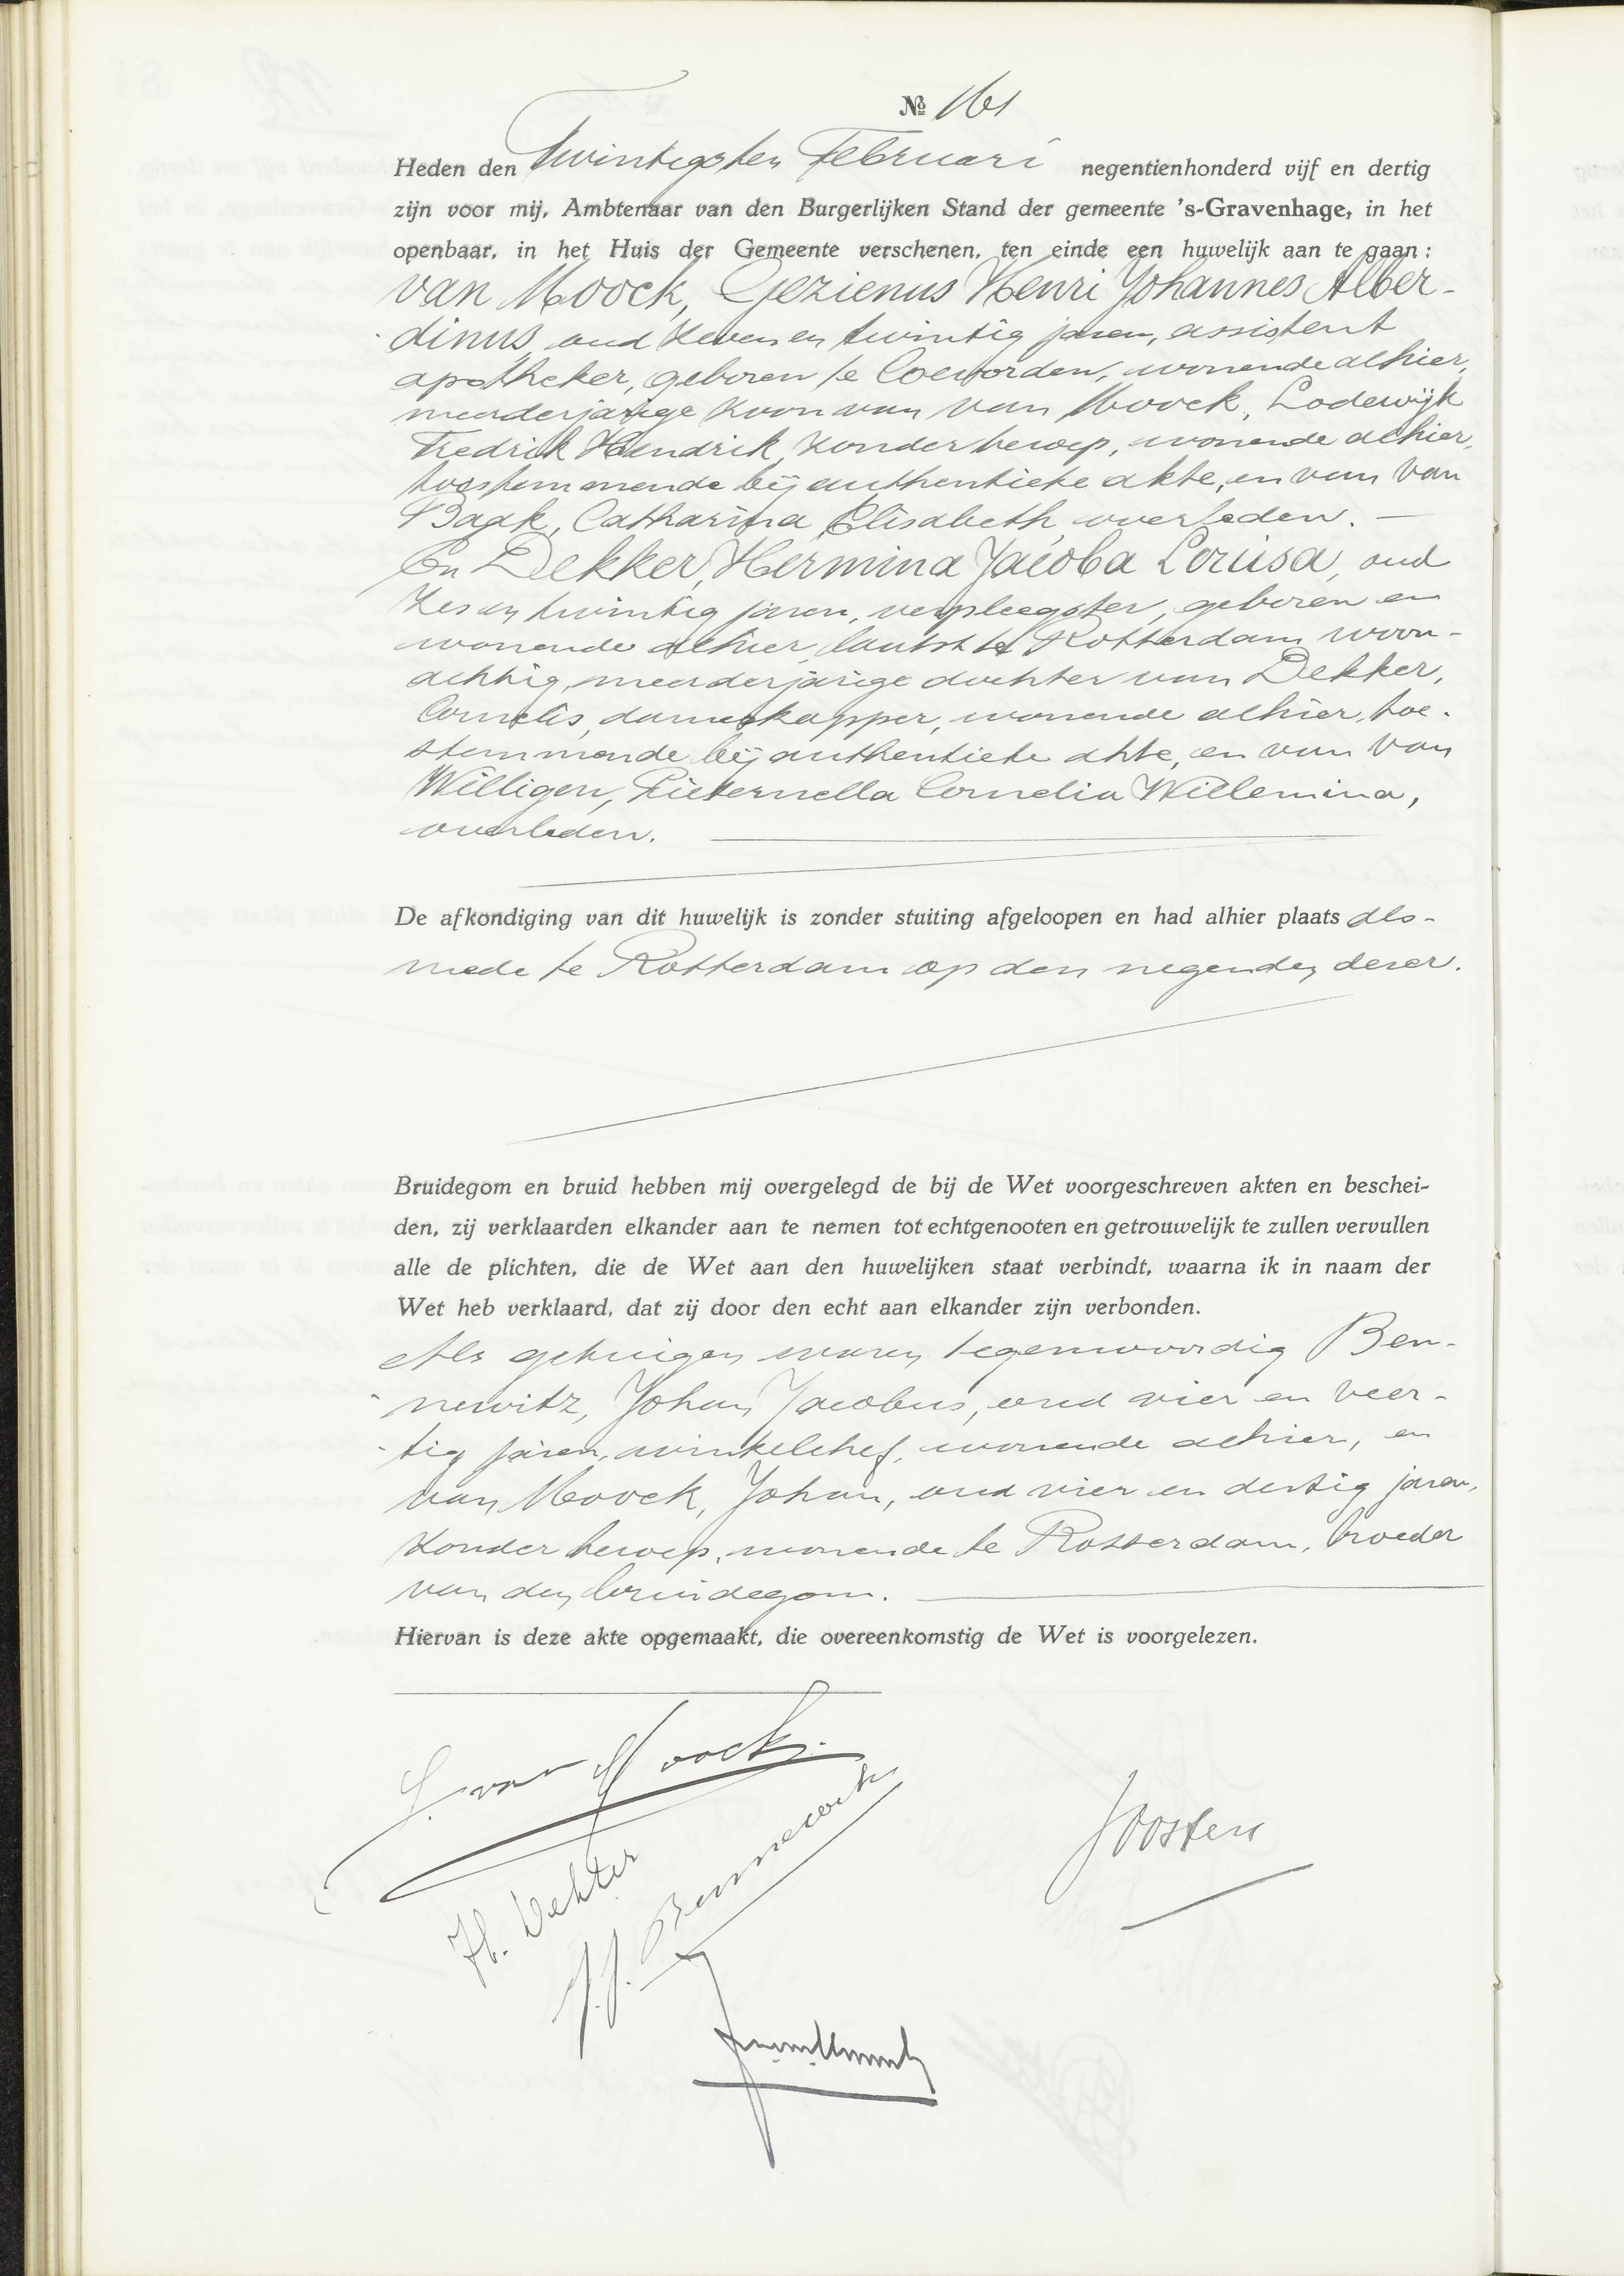 № 161
Heden den Twintigsten Februari negentienhonderd vijf en dertig
zijn voor mij, Ambtenaar van den Burgerlijken Stand der gemeente 's-Gravenhage, in het
openbaar, in het Huis der Gemeente verschenen, ten einde een huwelijk aan te gaan:
van Moock, Gezienus Henri Johannes Alber-
dinus, oud zeven en twintig jaren, assistent
apotheker, geboren te Coevorden, wonende alhier,
meerderjarige zoon van van Moock, Lodewijk
Fredrik Hendrik, zonder beroep, wonende alhier,
toestemmende bij authentieke akte, en van van
Baak, Catharina Elisabeth overleden. —
En Dekker, Hermina Jacoba Louisa, oud
zes en twintig jaren, verpleegster, geboren en
wonende alhier, laatst te Rotterdam woon-
achtig, meerderjarige dochter van Dekker,
Cornelis, dameskapper, wonende alhier, toe-
stemmende bij authentieke akte, en van van
Willigen, Pieternella Cornelia Willemina,
overleden.
De afkondiging van dit huwelijk is zonder stuiting afgeloopen en had alhier plaats als-
mede te Rotterdam op den negenden dezer.
Bruidegom en bruid hebben mij overgelegd de bij de Wet voorgeschreven akten en beschei-
den, zij verklaarden elkander aan te nemen tot echtgenooten en getrouwelijk te zullen vervullen
alle de plichten, die de Wet aan den huwelijken staat verbindt, waarna ik in naam der
Wet heb verklaard, dat zij door den echt aan elkander zijn verbonden.
Als getuigen waren tegenwoordig Ben-
newitz, Johan Jacobus, oud vier en veer-
tig jaren, winkelchef, wonende alhier, en
van Moock, Johan, oud vier en dertig jaren,
zonder beroep, wonende te Rotterdam, broeder
van den bruidegom.
Hiervan is deze akte opgemaakt, die overeenkomstig de Wet is voorgelezen.
G. van Moock.
Joosten
H. Dekker
J.J. Bennewitz